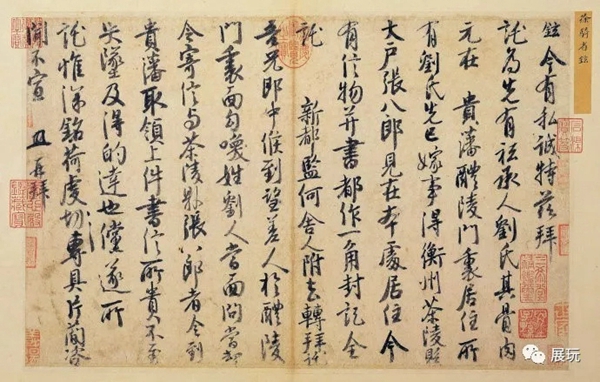 鉉今有私誠特茲拜
託為先有祗承人劉氏其骨肉
元在 貴藩醴陵門裏居住所
有劉氏先已嫁事得衡州茶陵縣
大户張八郎見在本處居住今
有信物并書都作一角封記全
託 新都監何舍人附去轉拜託
吾兄郎中候到望差人於醴陵
門裏面勾喚姓劉人當面問當却
令寄信與茶陵縣張八郎者令到
貴藩取領上件書信所貴不至
失墜及得的達也儻遂所
託惟深銘荷虔切專具片簡諮
聞不宣 鉉再拜
展玩